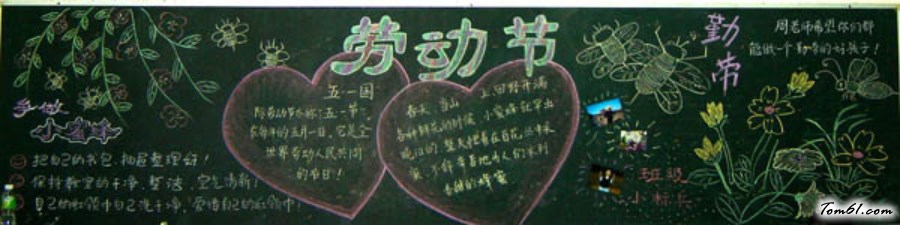 劳动节
争做
小蜜蜂
把自己的书包、抽屉整理好！
保持教室的干净、整洁、空气清新！
自己的红领巾自己洗干净，爱惜自己的红领巾！
五一国
际劳动节亦称“五一节”，
在每年的五月一日，它是全
世界劳动人民共同
的节日！
春天，当山上、田野开满
各种鲜花的时候，小蜜蜂
香甜的蜂蜜
勤
周老师希望你们都
能做一个勤劳的好孩子！
班级
小标兵
Tom61.com